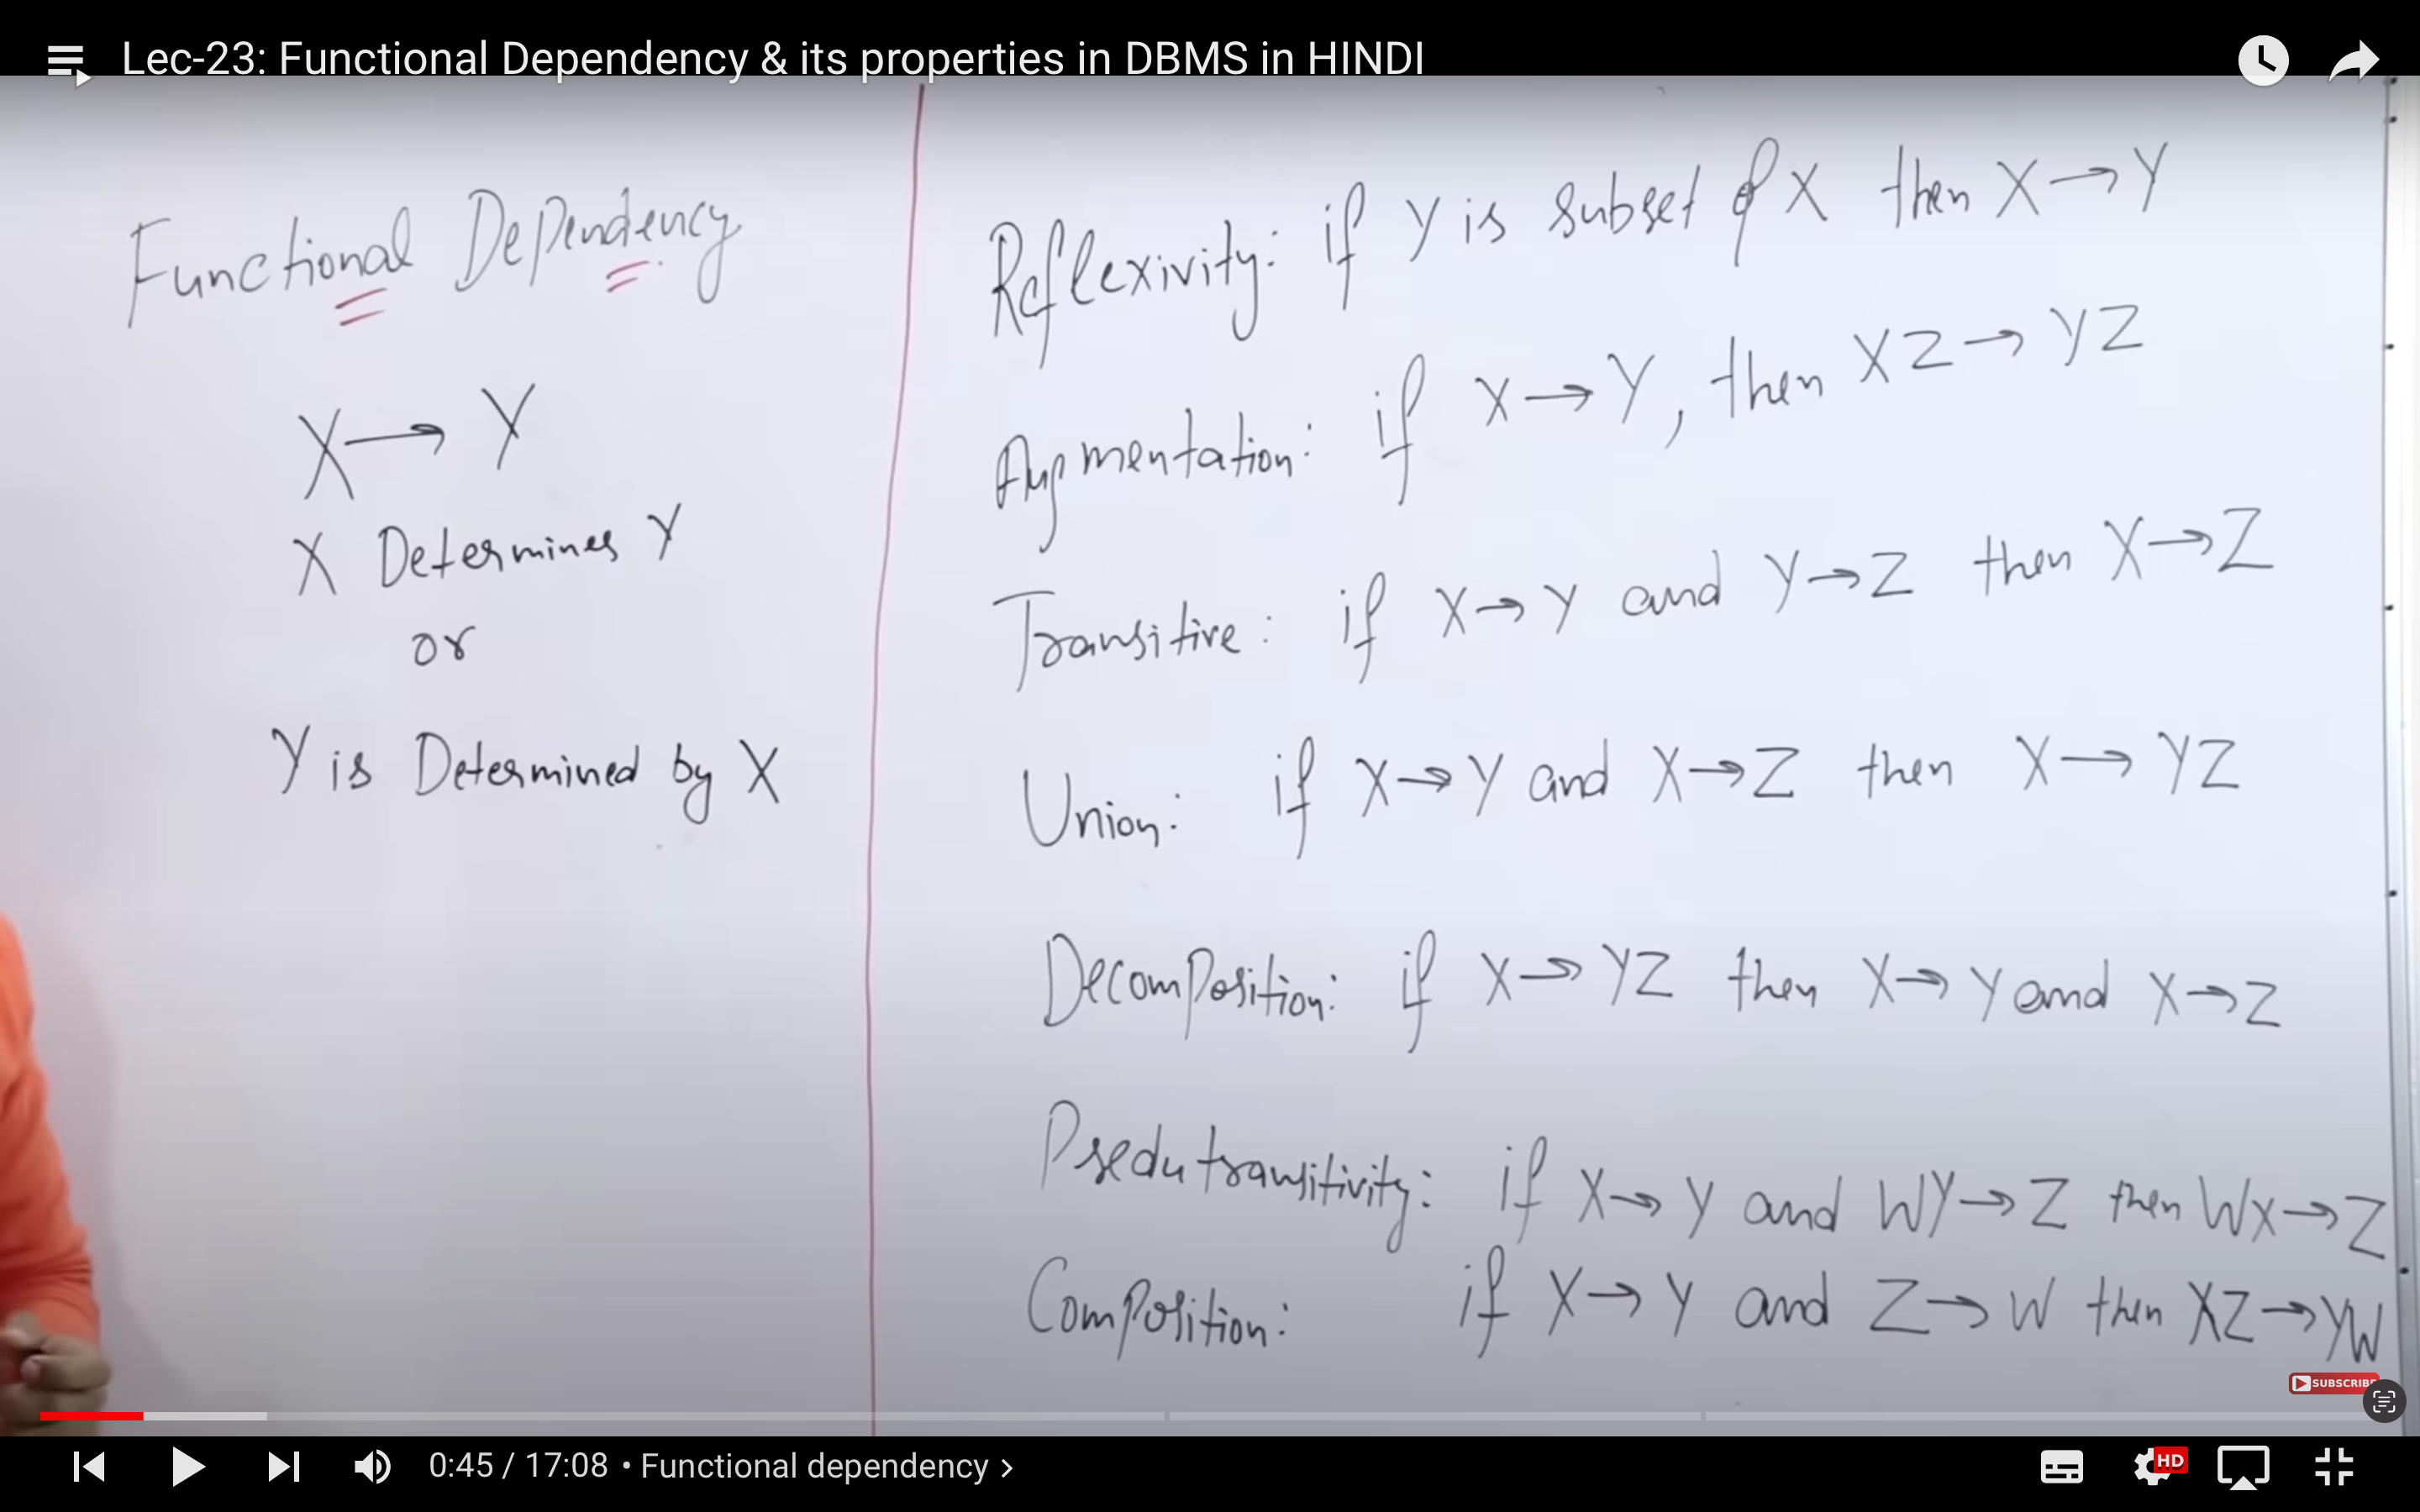 Lec-23: Functional Dependency & its properties in DBMS in HINDI
Functional Dependency
X → Y
X Determines Y
or
Y is Determined by X
Reflexivity: if Y is subset of X then X → Y
Augmentation: if X → Y, then XZ → YZ
Transitive: if X → Y and Y → Z then X → Z
Union: if X → Y and X → Z then X → YZ
Decomposition: if X → YZ then X → Y and X → Z
Psedutransitivity: if X → Y and WY → Z then WX → Z
Composition: if X → Y and Z → W then XZ → YW
SUBSCRIBE
0:45 / 17:08 • Functional dependency >
HD